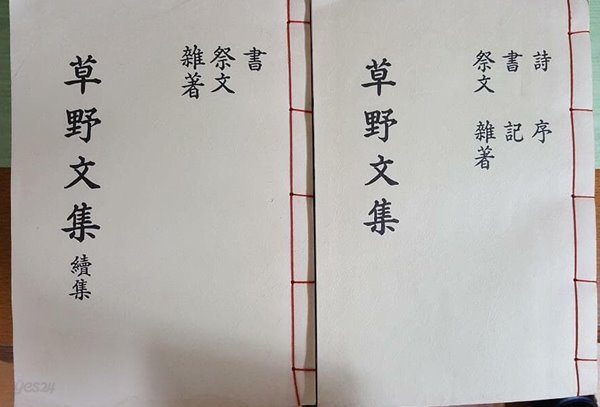 詩 序
書 記
祭文 雜著
草野文集
書
祭文
雜著
草野文集 續集
yes24